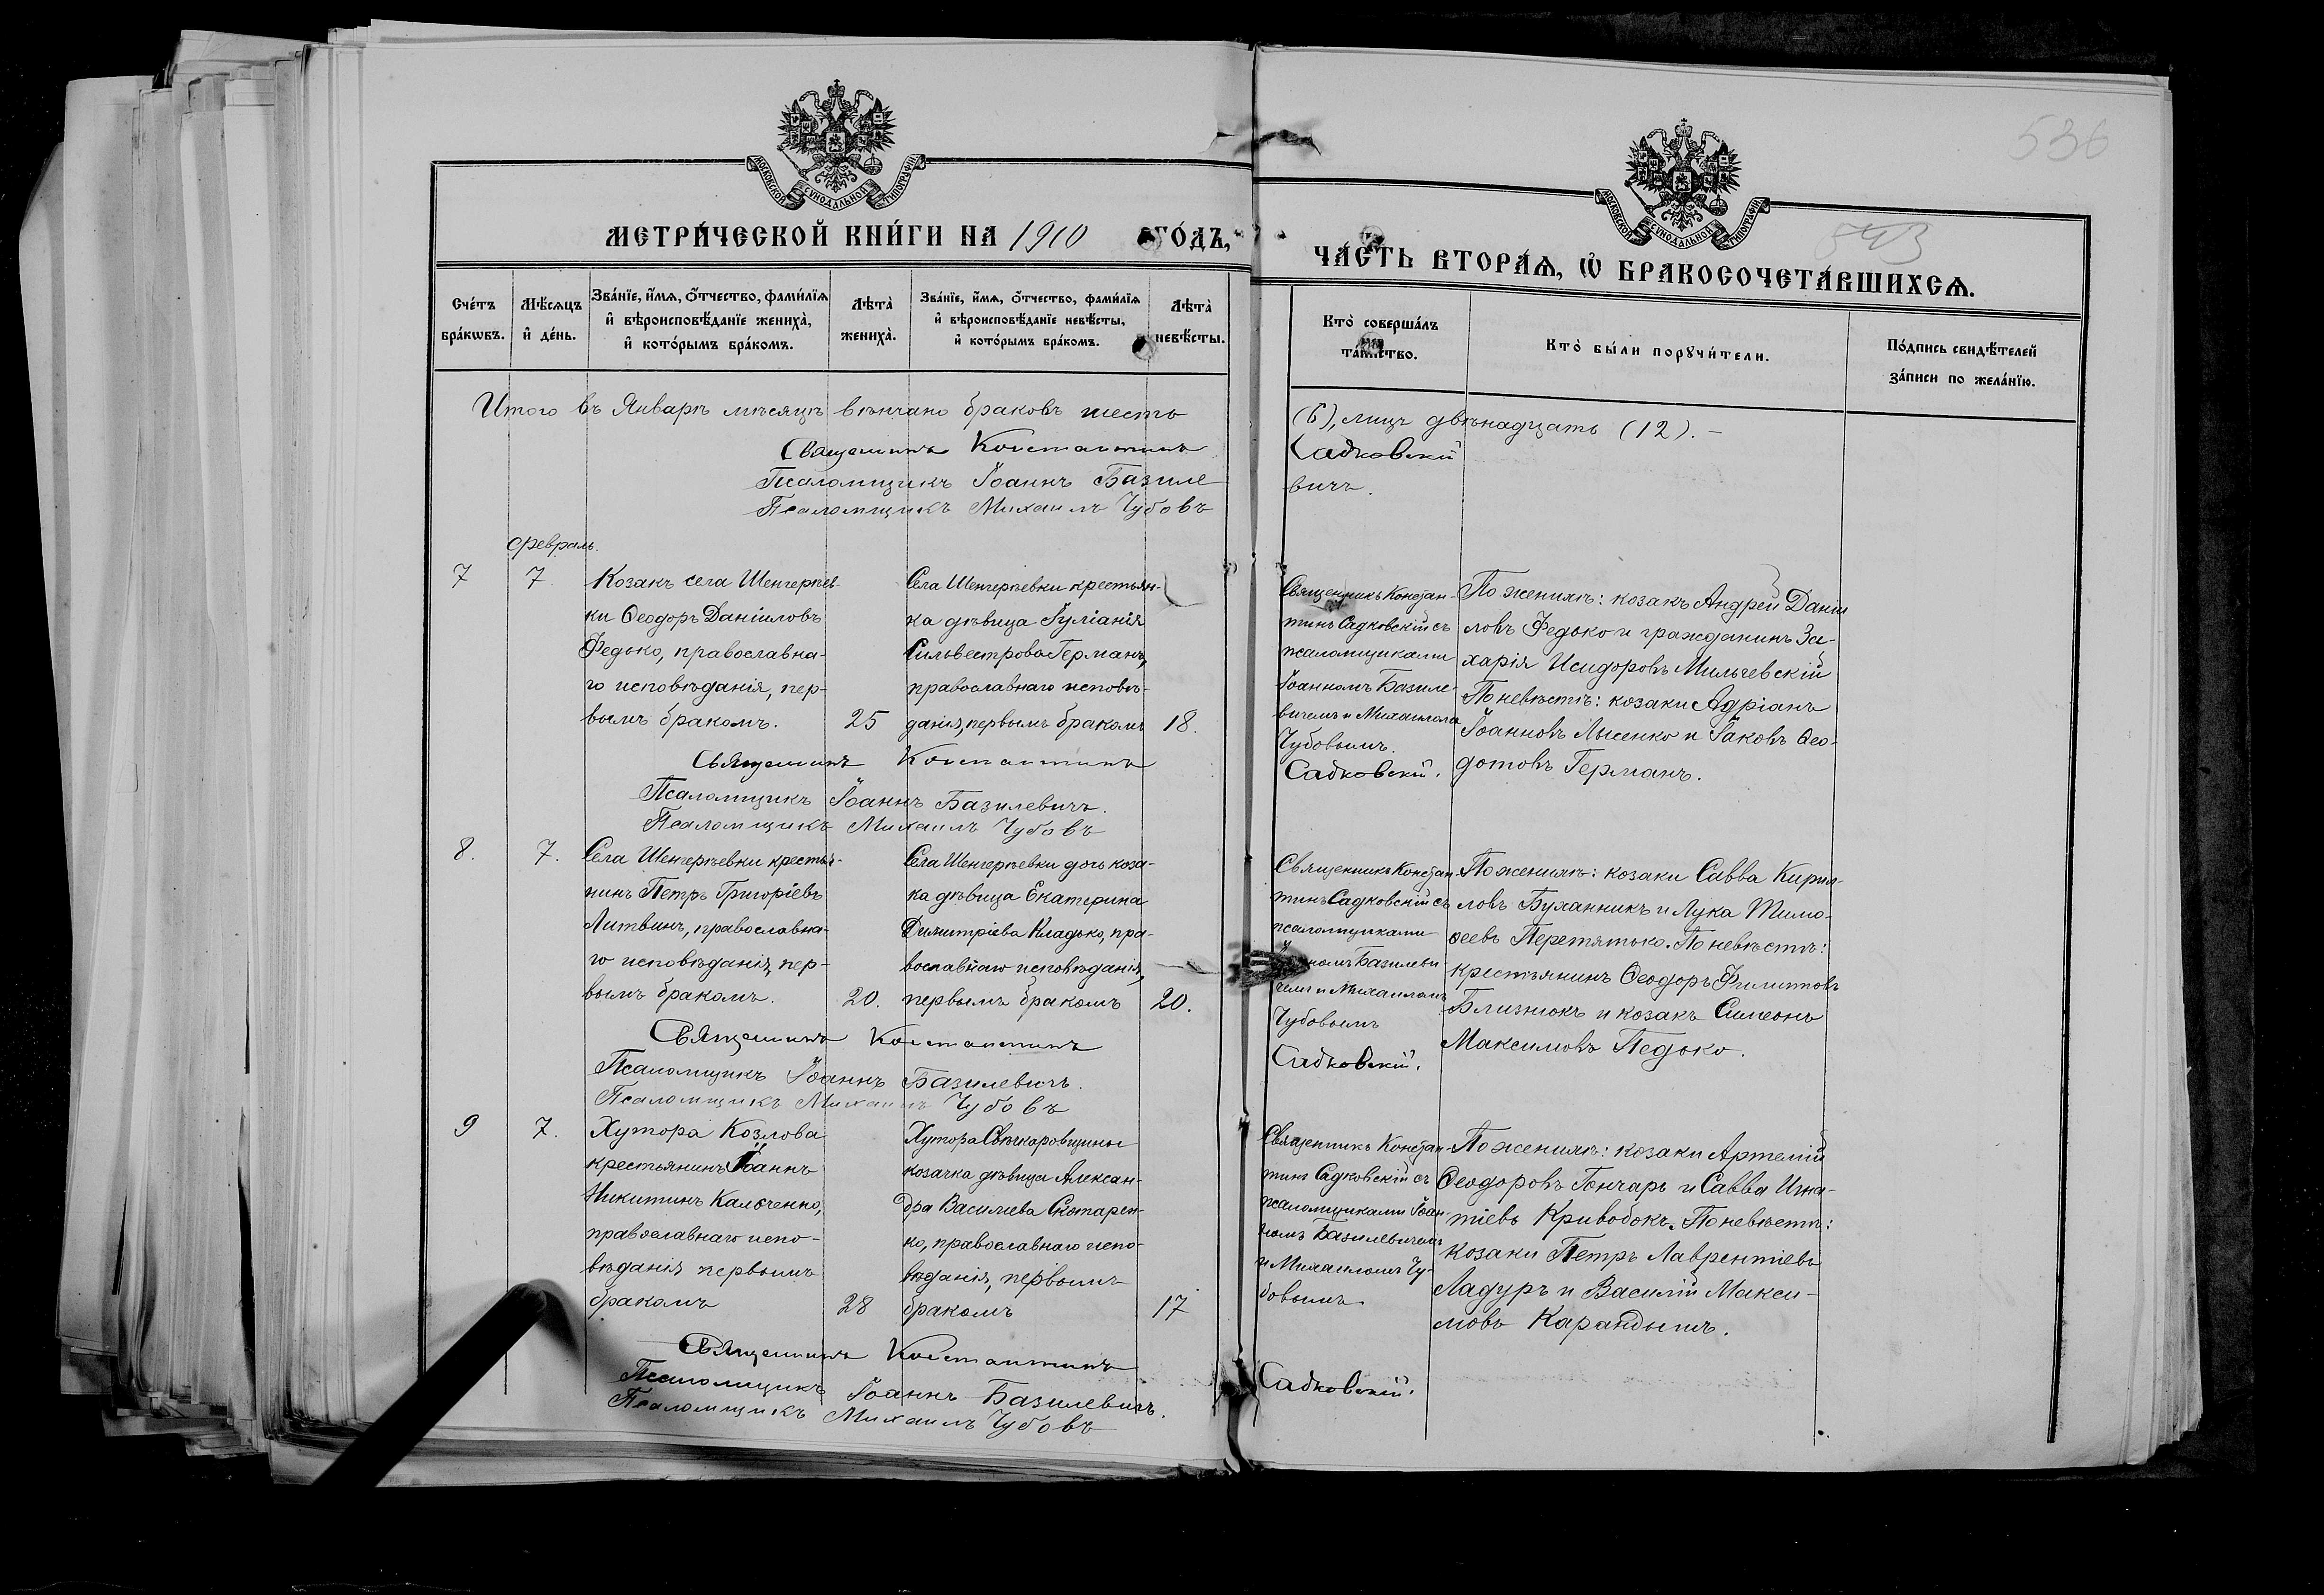 536
543
МОСКОВСКОЙ СѴНОДАЛЬНОЙ ТИПОГРАФІИ
МОСКОВСКОЙ СѴНОДАЛЬНОЙ ТИПОГРАФІИ
МЕТРИ́ЧЕСКОЙ КНИ́ГИ НА 1910 ГО́ДЪ,
ЧА́СТЬ ВТОРА́Ѧ, Ѽ БРАКОСОЧЕТА́ВШИХСѦ.
Сче́тъ
бра́кѡвъ.
Мѣ́сѧцъ
и҆ де́нь.
Зва́нїе, и҆́мѧ, ѻ҆́тчество, фами́лїѧ
и҆ вѣроисповѣ́данїе жениха̀,
и҆ кото́рымъ бра́комъ.
Лѣта̀
жениха̀.
Зва́нїе, и҆́мѧ, ѻ҆́тчество, фами́лїѧ
и҆ вѣроисповѣ́данїе невѣ́сты,
и҆ кото́рымъ бра́комъ.
Лѣта̀
невѣ́сты.
Кто̀ соверша́лъ
та́инство.
Кто̀ бы́ли порꙋчи́тели.
По́дпись свидѣ́телей
за́писи по жела́нїю.
Итого въ Январѣ мѣсяцѣ вѣнчано браковъ шесть
(6), лицъ двѣнадцать (12). –
Священникъ Константинъ
Садковскій
Псаломщикъ Іоаннъ Базиле
вичъ.
Псаломщикъ Михаилъ Чубовъ
Февраль.
7
7.
Козакъ села Шенгерѣев-
ки Ѳеодоръ Даніиловъ
Федько, православна-
го исповѣданія, пер-
вымъ бракомъ.
25
Села Шенгерѣевки крестьян-
ка дѣвица Іуліанія
Сильвестрова Германъ,
православнаго исповѣ-
данія, первымъ бракомъ
18.
Священникъ Констан-
тинъ Садковскій съ
псаломщиками
Іоанномъ Базиле-
вичемъ и Михаиломъ
Чубовымъ.
По женихѣ: козакъ Андрей Даніи
ловъ Федько и гражданинъ За-
харія Исидоровъ Мильчевскій
По невѣстѣ: козаки Адріанъ
Іоанновъ Лысенко и Іаковъ Ѳео-
дотовъ Германъ.
Священникъ Константинъ
Садковскій.
Псаломщикъ Іоаннъ Базилевичъ.
Псаломщикъ Михаилъ Чубовъ
8.
7.
Села Шенгерѣевки крестья-
нинъ Петръ Григоріевъ
Литвинъ, православна-
го исповѣданія, пер-
вымъ бракомъ.
20.
Села Шенгерѣевки дочь коза-
ка дѣвица Екатерина
Димитріева Кладько, пра-
вославнаго исповѣданія,
первымъ бракомъ
20.
Священникъ Констан-
тинъ Садковскій съ
псаломщиками
Іоанномъ Базилеви
чемъ и Михаиломъ
Чубовымъ
По женихѣ: козаки Савва Кирил-
ловъ Буханникъ и Лука Тимо-
ѳеевъ Перетятько. По невѣстѣ:
крестьянинъ Ѳеодоръ Филиповъ
Близнюкъ и козакъ Симеонъ
Максимовъ Педько.
Священникъ Константинъ
Садковскій.
Псаломщикъ Іоаннъ Базилевичъ.
Псаломщикъ Михаилъ Чубовъ
9
7.
Хутора Козлова
крестьянинъ Іоаннъ
Никитинъ Калюченко,
православнаго испо-
вѣданія первымъ
бракомъ
28
Хутора Свѣчкаровщины
козачка дѣвица Алексан-
дра Василіева Скотарен-
ко, православнаго испо-
вѣданія, первымъ
бракомъ
17
Священникъ Констан-
тинъ Садковскій съ
псаломщиками Іоан-
номъ Базилевичемъ
и Михаиломъ Чу-
бовымъ
По женихѣ: козаки Артемій
Ѳеодоровъ Гончаръ и Савва Игна-
тіевъ Кривобокъ. По невѣстѣ:
козаки Петръ Лаврентіевъ
Ладуръ и Василій Макси-
мовъ Карандышъ.
Священникъ Константинъ
Садковскій.
Псаломщикъ Іоаннъ Базилевичъ.
Псаломщикъ Михаилъ Чубовъ